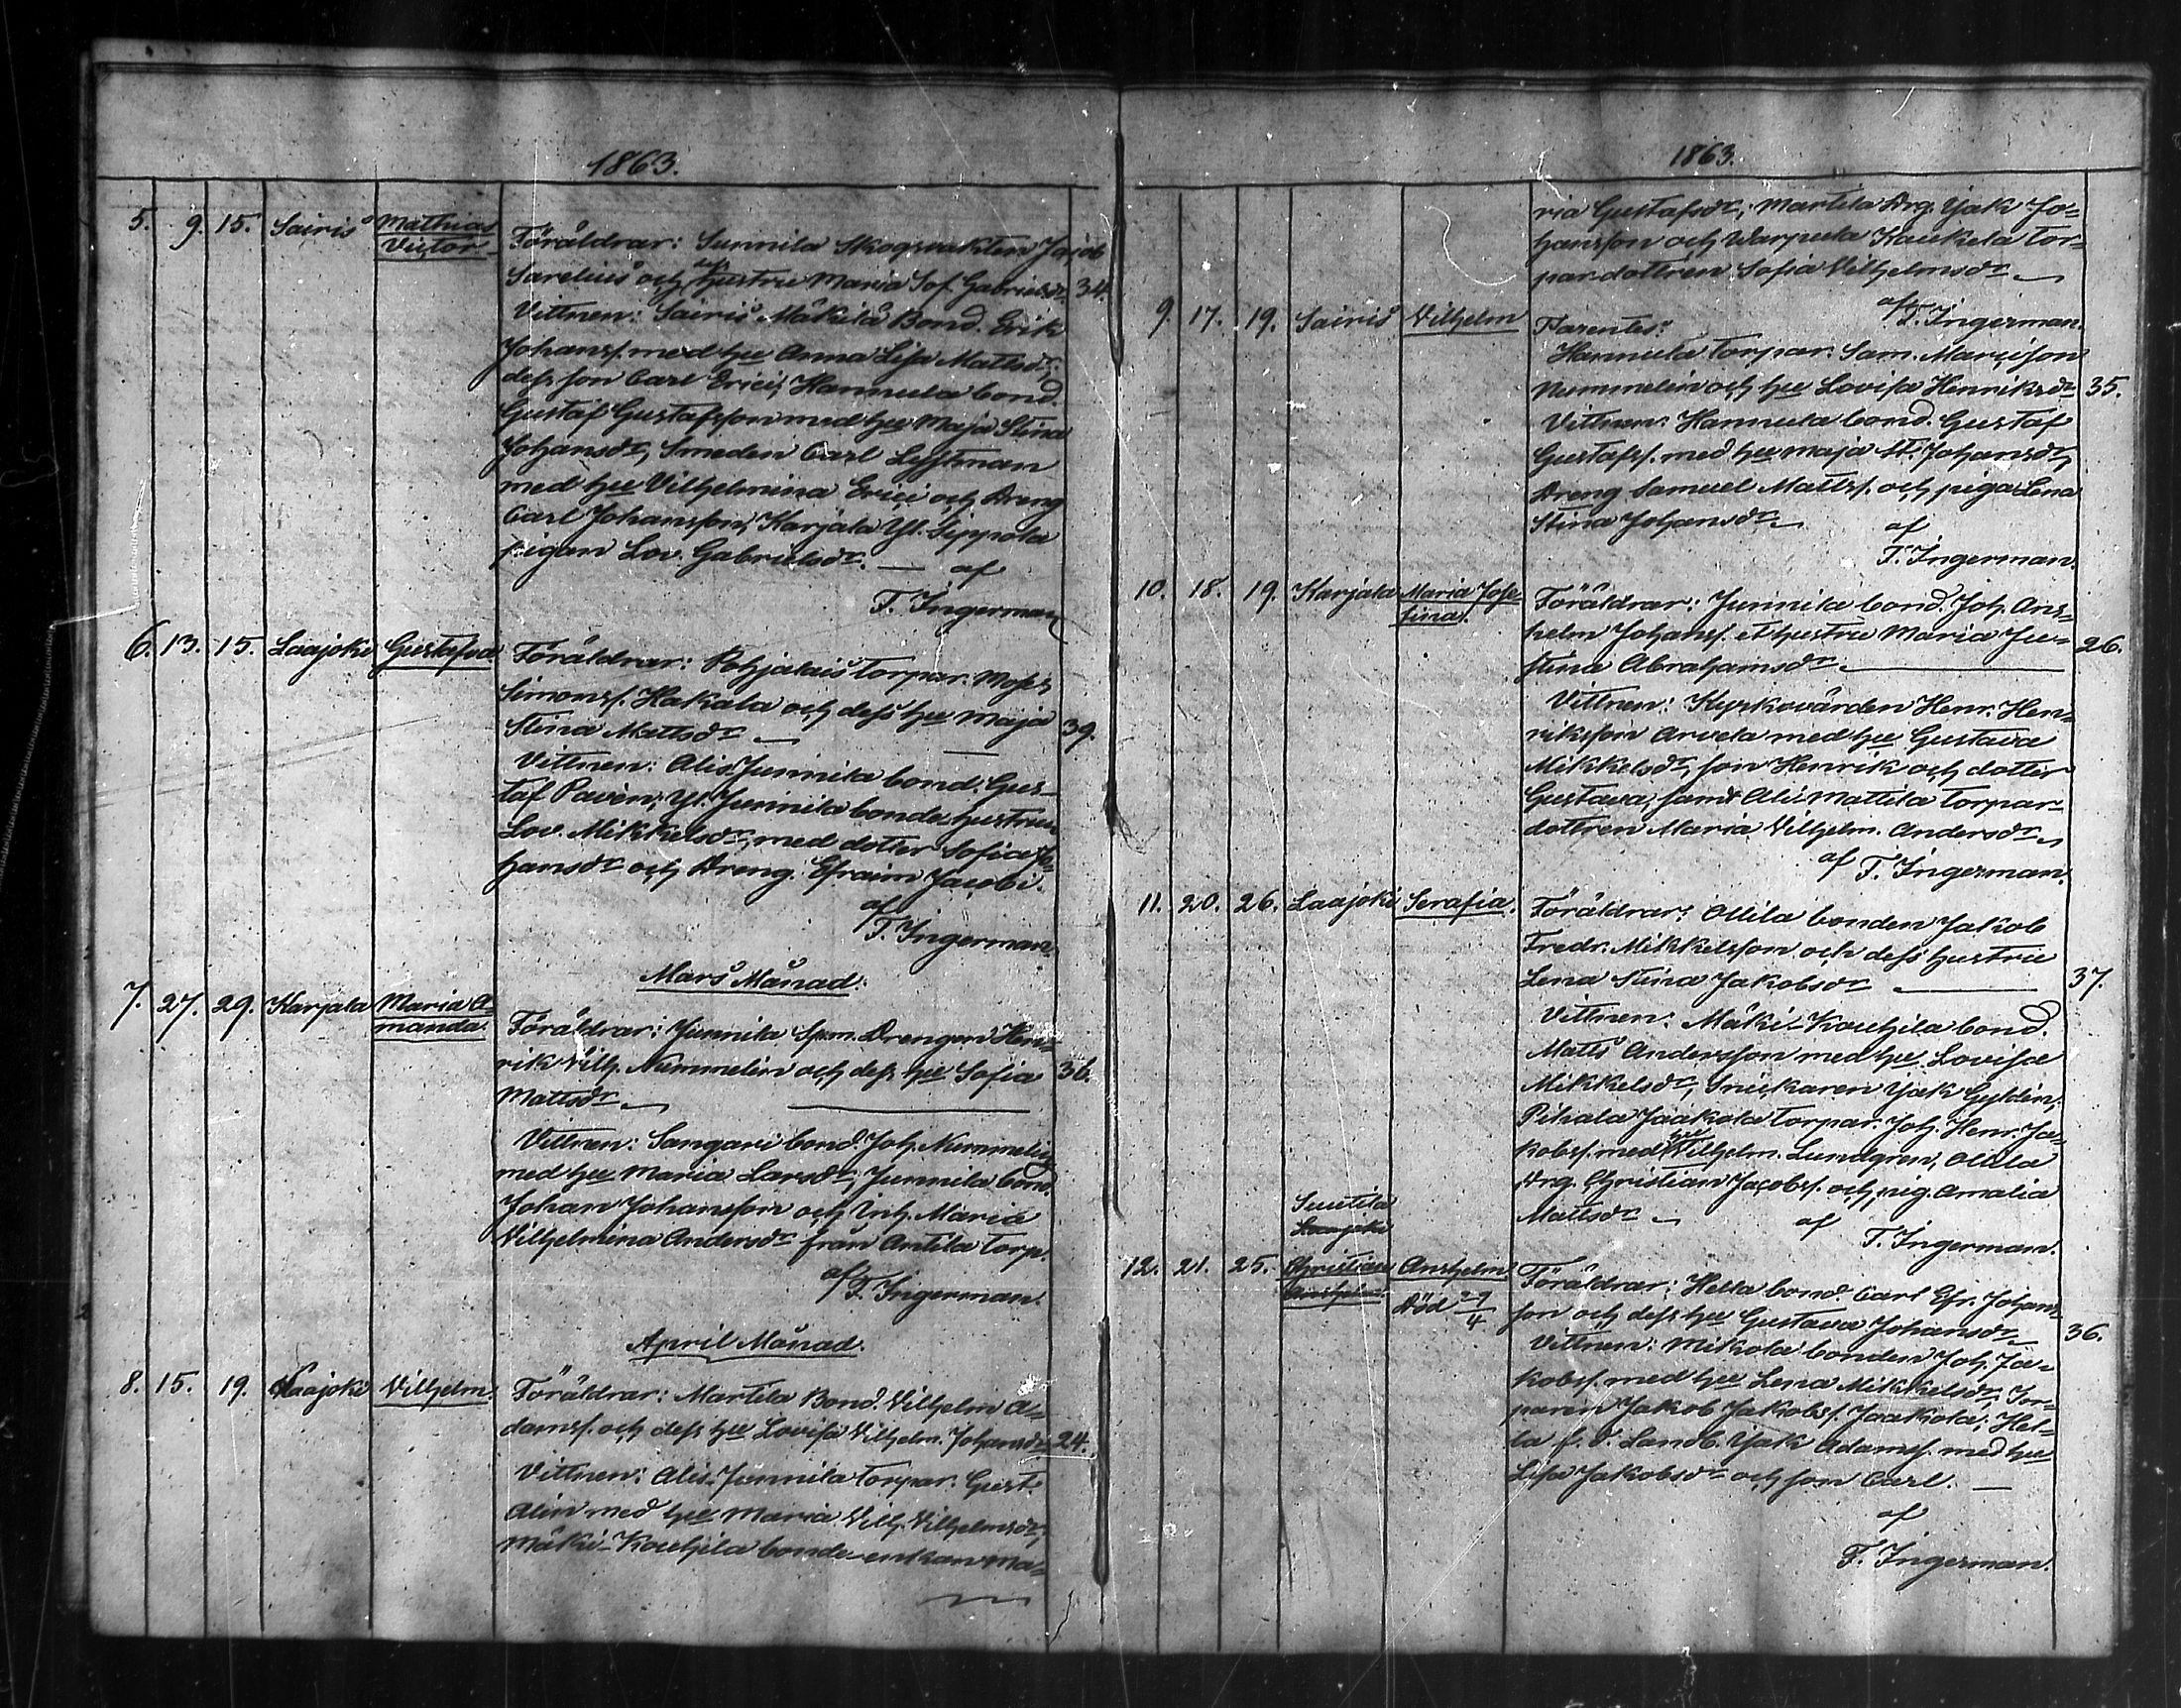 1863.
5. 9. 15. Sairis Mathias Victor Föräldrar: Sunnila Skogvakten Jacob
Sarelius och dess hustru Maria Sof. Gabrielsdr 34.
Vittnen: Sairis Mäkilä Bond. Erik
Johanss. med hu Anna Lisa Mattsdr,
dess son Carl Erici, Hannula bond.
Gustaf Gustafsson med hu Maja Stina
Johansdr, Smeden Carl
med hu Vilhelmina Erici och Dreng
Carl Johansson, Karjala Yl. Seppola
pigan Lov. Gabrielsdr. — af
F. Ingerman
6. 13. 15. Laajoki Gustafva Föräldrar: Pohjalais Torpar. Moses
Simonss. Hakala och dess hu Maja
Stina Mattsdr — 39.
Vittnen: Alis Junnila bond. Gus-
taf Pavén, Yl. Junnila bonde hustrun
Lov. Mikkelsdr, med dotter Sofia Jo-
hansdr och Dreng. Efraim Jacobi.
af
F. Ingerman.
Mars Månad.
7. 27. 29. Karjala Maria A-
manda. Föräldrar: Junnila Spm. Drengen Hen-
rik Vilh. Nummelin och dess hu Sofia 36.
Mattsdr —
Vittnen: Sangari bond. Joh. Nummelin
med hu Maria Larsdr, Junnila bond.
Johan Johansson och Inh. Maria
Vilhelmina Andersdr från Antila torp.
af F. Ingerman.
April Månad.
8. 15. 19. Laajoki Vilhelm. Föräldrar: Martila Bond. Vilhelm A-
damss. och dess hu Lovisa Vilhelm. Johansdr 24.
Vittnen: Alis-Junnila torpar. Gust.
Alin med hu Maria Vilh. Vilhelmsdr,
Mäki-Kouhila bonde-enkan Ma-
1863.
ria Gustafsdr, Martila Drg. Isak Jo-
hansson och Warpula Haukela Tor-
pardottren Sofia Vilhelmsdr —
af F. Ingerman.
9. 17. 19. Sairis Vilhelm Parentes:
Hannula torpar. Sam.
Nummelin och hu Lovisa Henriksdr 35.
Vittnen: Hannula bond. Gustaf
Gustafs. med hu Maja St. Johansdr,
Dreng Samuel Mattss. och piga Lena
Stina Johansdr — af
F. Ingerman.
10. 18. 19. Karjala Maria Jose-
fina. Föräldrar: Junnila bond. Joh. Ans-
helm Johanss. et hustru Maria Jus- 26.
tina Abrahamsdr. —
Vittnen: Kyrkovärden Henr. Hen-
riksson Arvela med hu Gustava
Mikkelsdr, son Henrik och dotter
Gustava, samt Ali-Mattila torpar-
dottren Maria Vilhelm. Andersdr —
af F. Ingerman.
11. 20. 26. Laajoki Serafia. Föräldrar: Ollila bonden Jakob
Fredr. Mikkelsson och dess hustru
Lena Stina Jakobsdr — 37.
Vittnen: Mäki-Kouhila bond.
Matts Andersson med hu Lovisa
Mikkelsdr, Snickaren Isak Gyldén,
Pihala Jaakola torpar. Joh. Henr. Ja-
kobss. med hu Vilhelm. Lundgren, Ollila
Drg. Christian Jacobss. och pig. Amalia
Mattsdr — af
F. Ingerman.
Suutila
Laajoki
12. 21. 25. Christian
Anshelm. Anshelm
Död 29/4 Föräldrar: Hella bond. Carl Efr. Johans-
son och dess hu Gustava Johansdr — 36.
Vittnen: Mikola bonden Joh. Ja-
kobss. med hu Lena Mikkelsdr, Tor-
paren Jakob Jakobss. Jaakola, Hel-
la f. d. Landb. Isak Adamss. med hu
Lisa Jakobsdr och son Carl. —
af
F. Ingerman.